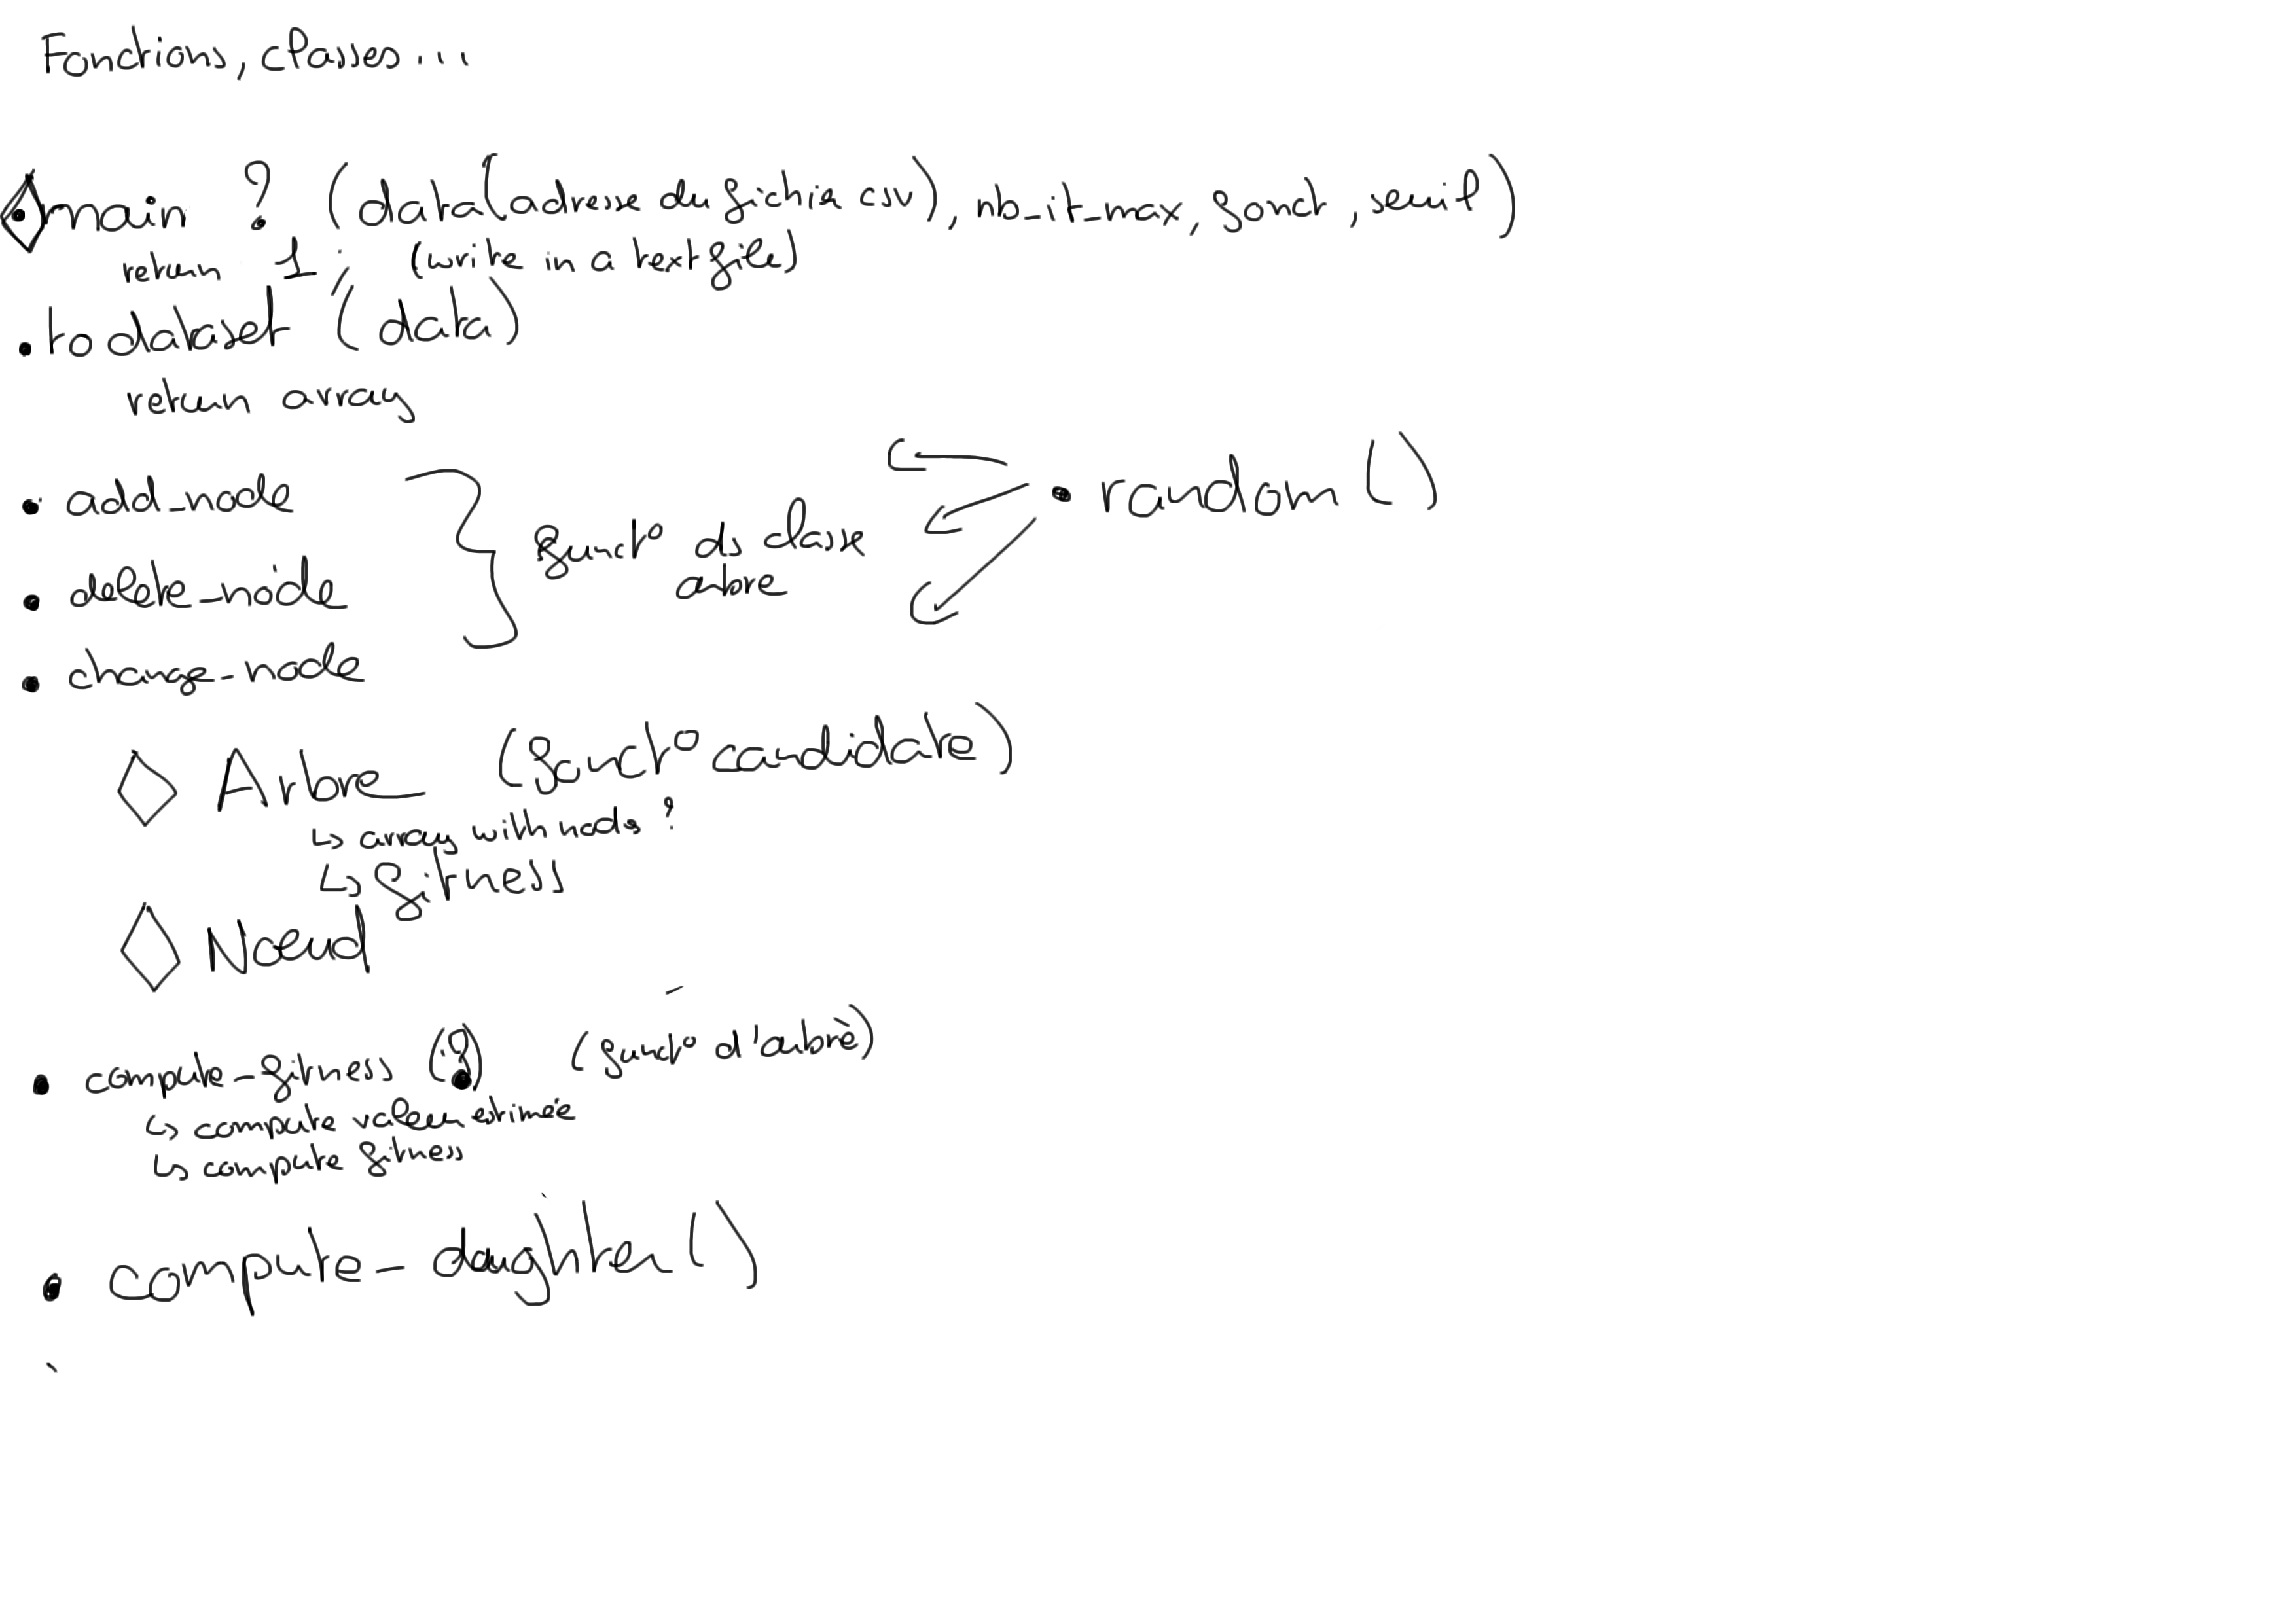 Fonctions, classes...
main ? (data (adresse du fichier csv), nb_it_max, fonct, seuil)
return 1; (write in a text file)
to dataset (data)
return array
• add_node
• delete_node
• change_node
funct° ds classe
arbre
• random ()
Arbre (funct° candidate)
↳ array with nodes ?
↳ fitness
Noeud
• compute_fitness (?) (funct° d'arbre)
↳ compute valeur estimée
↳ compute fitness
• compute_daughter ()